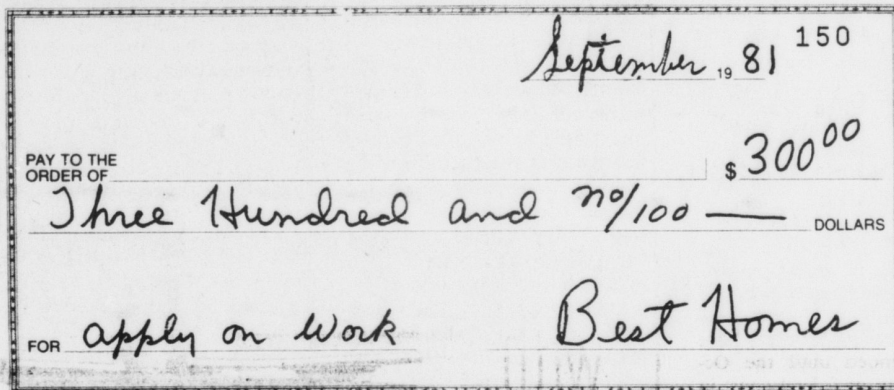 150
September 19 81
PAY TO THE
ORDER OF $ 300 00
Three Hundred and no/100 — DOLLARS
FOR apply on Work Best Homes